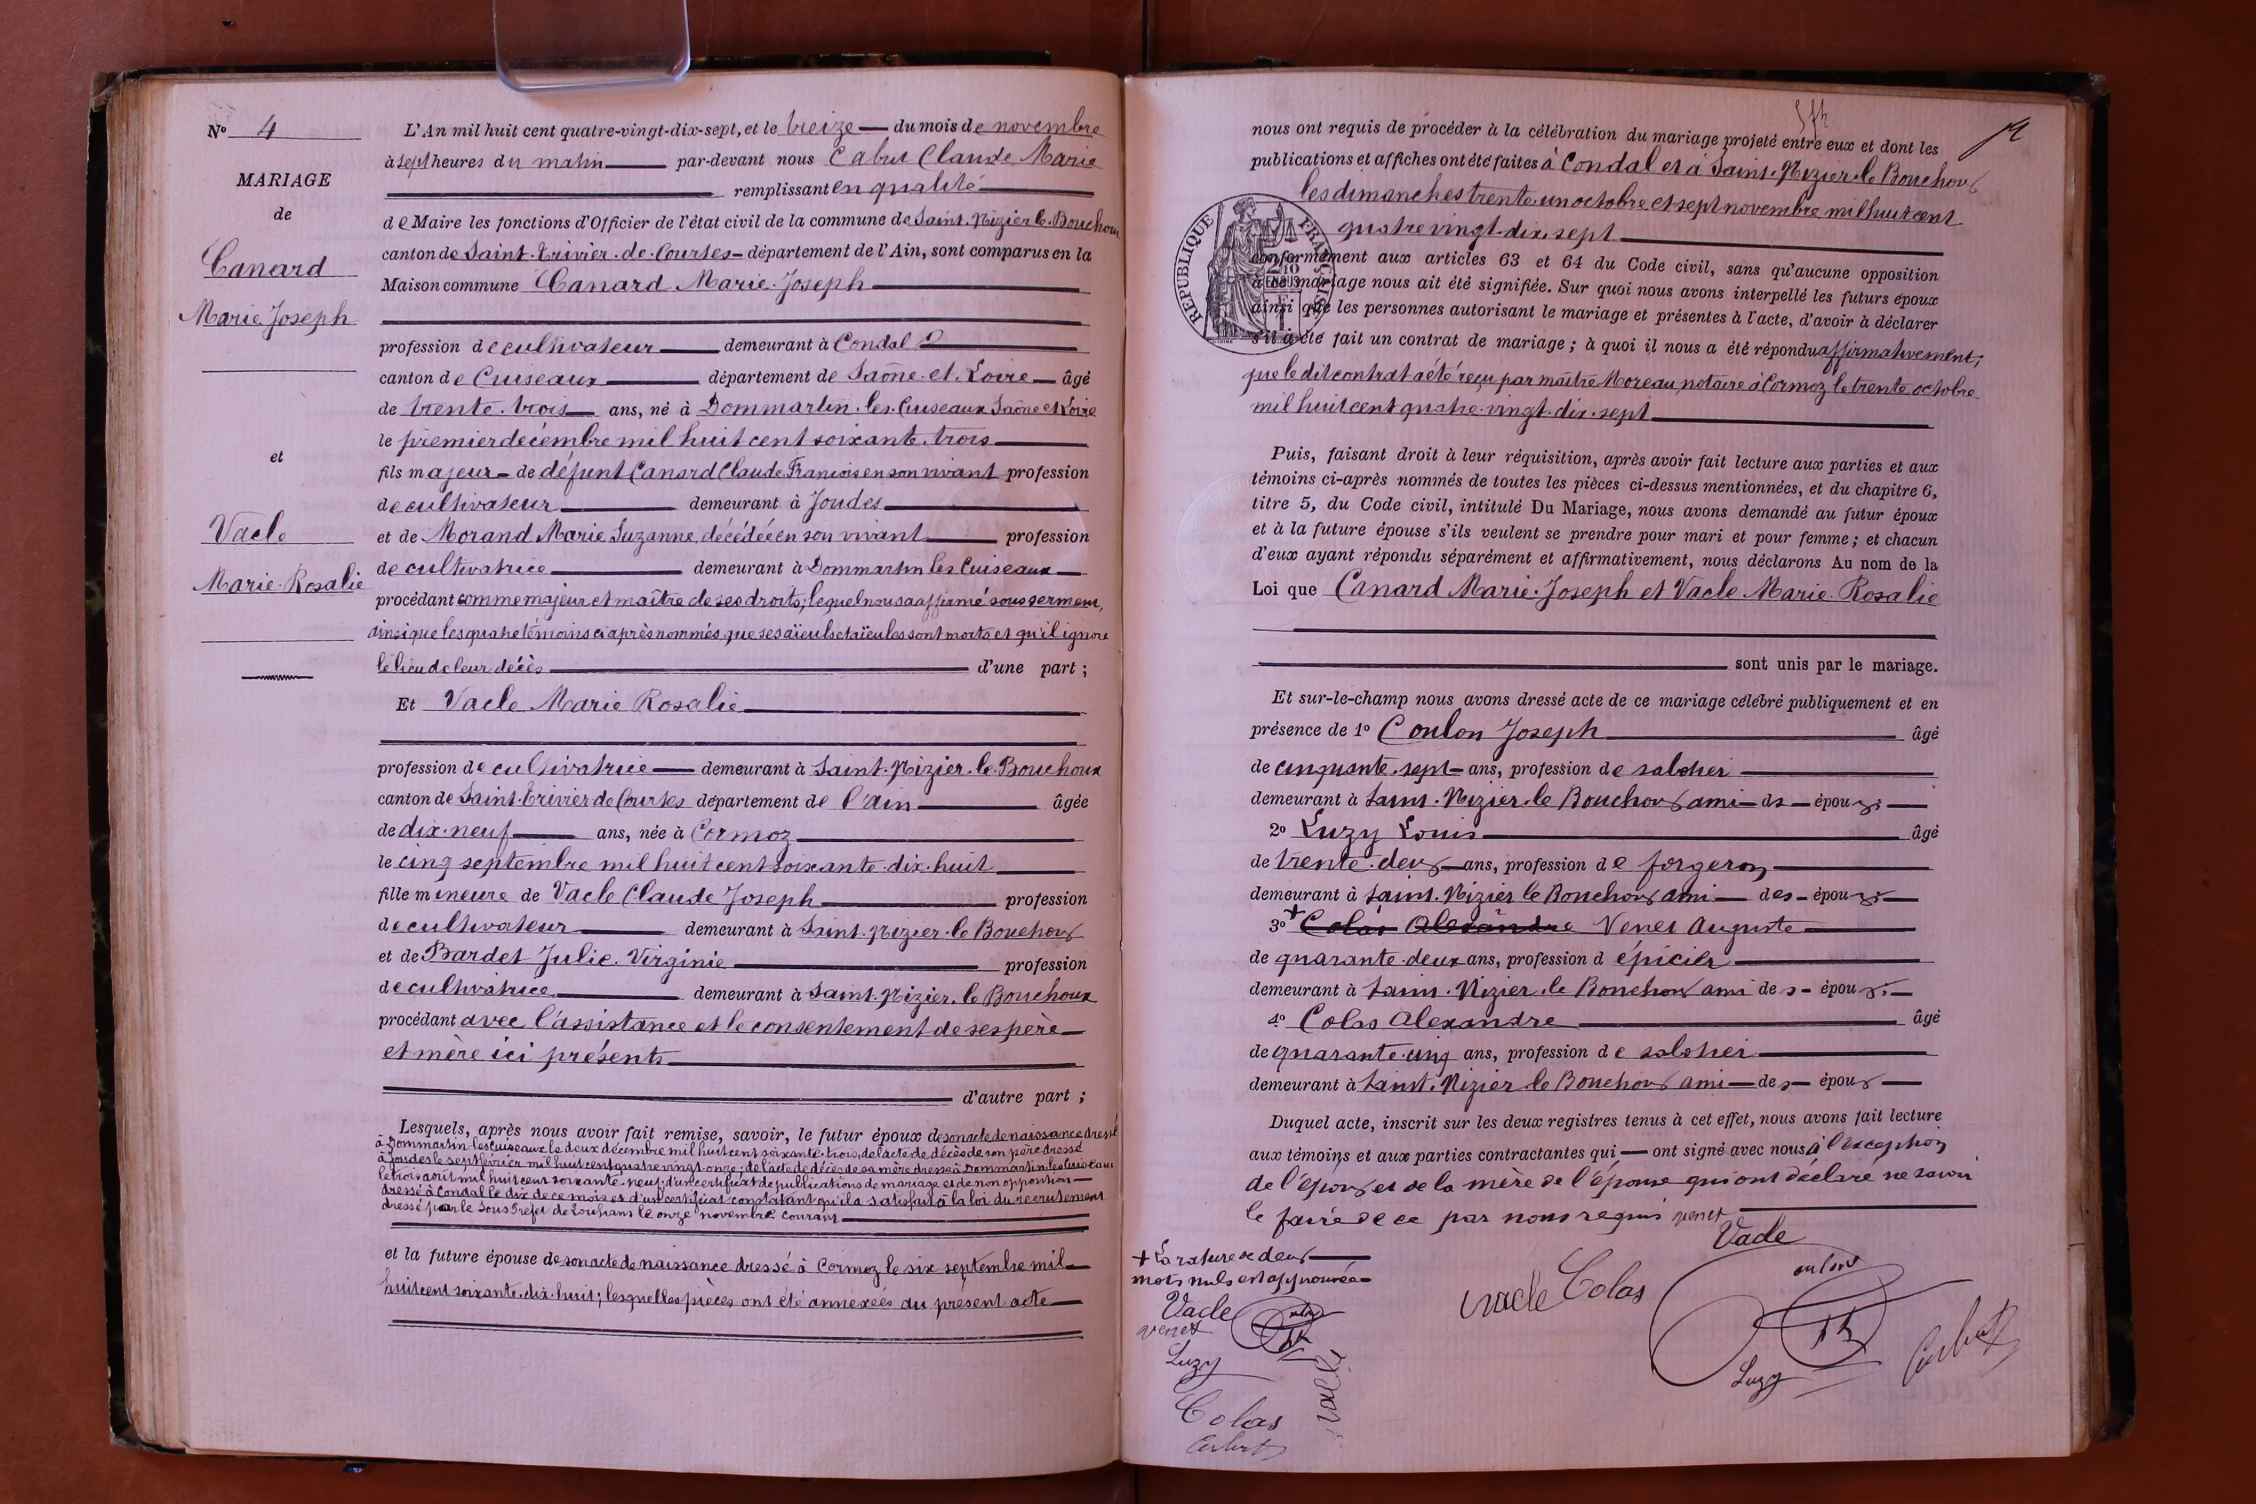 N° 4
MARIAGE
de
Canard
Marie Joseph
et
Vacle
Marie Rosalie
L'An mil huit cent quatre-vingt-dix-sept, et le treize du mois de novembre
à sept heures du matin par-devant nous Cabut Claude Marie
remplissant en qualité
de Maire les fonctions d'Officier de l'état civil de la commune de Saint-Nizier-le-Bouchoux
canton de Saint-Trivier-de-Courtes département de l'Ain, sont comparus en la
Maison commune Canard Marie-Joseph
profession de cultivateur demeurant à Condal
canton de Cuiseaux département de Saône-et-Loire âgé
de trente-trois ans, né à Dommartin-les-Cuiseaux Saône et Loire
le premier décembre mil huit cent soixante-trois
fils majeur de défunt Canard Claude François en son vivant profession
de cultivateur demeurant à Joudes
et de Morand Marie Suzanne, décédée en son vivant profession
de cultivatrice demeurant à Dommartin les Cuiseaux
procédant comme majeur et maître de ses droits; lequel nous a affirmé sous serment,
ainsi que les quatre témoins ci-après nommés, que ses aïeuls et aïeules sont morts et qu'il ignore
le lieu de leur décès d'une part ;
Et Vacle Marie Rosalie
profession de cultivatrice demeurant à Saint-Nizier-le-Bouchoux
canton de Saint-Trivier de Courtes département de l'ain âgée
de dix-neuf ans, née à Cormoz
le cinq septembre mil huit cent soixante-dix-huit
fille mineure de Vacle Claude Joseph profession
de cultivateur demeurant à Saint-Nizier-le Bouchoux
et de Bardet Julie Virginie profession
de cultivatrice demeurant à Saint-Nizier-le Bouchoux
procédant avec l'assistance et le consentement de ses père
et mère ici présents
d'autre part ;
Lesquels, après nous avoir fait remise, savoir, le futur époux de son acte de naissance dressé
à Dommartin-les Cuiseaux le deux décembre mil huit cent soixante-trois, de l'acte de décès de son père dressé
à Joudes le sept février mil huit cent quatre vingt-onze; de l'acte de décès de sa mère dressé à Dommartin les Cuiseaux
le trois août mil huit cent soixante-neuf; d'un certificat de publications de mariage et de non opposition
dressé à Condal le dix de ce mois et d'un certificat constatant qu'il a satisfait à la loi du recrutement
dressé par le Sous Préfet de Louhans le onze novembre courant
et la future épouse de son acte de naissance dressé à Cormoz le six septembre mil
huit cent soixante-dix-huit; lesquelles pièces ont été annexées au présent acte
nous ont requis de procéder à la célébration du mariage projeté entre eux et dont les
publications et affiches ont été faites à Condal et à Saint-Nizier-le Bouchoux
les dimanches trente-un octobre et sept novembre mil huit cent
quatre vingt-dix-sept
RÉPUBLIQUE FRANÇAISE
conformément aux articles 63 et 64 du Code civil, sans qu'aucune opposition
à ce mariage nous ait été signifiée. Sur quoi nous avons interpellé les futurs époux
ainsi que les personnes autorisant le mariage et présentes à l'acte, d'avoir à déclarer
s'il a été fait un contrat de mariage ; à quoi il nous a été répondu affirmativement;
que le dit contrat a été reçu par maître Moreau, notaire à Cormoz le trente octobre
mil huit cent quatre-vingt-dix-sept
Puis, faisant droit à leur réquisition, après avoir fait lecture aux parties et aux
témoins ci-après nommés de toutes les pièces ci-dessus mentionnées, et du chapitre 6,
titre 5, du Code civil, intitulé Du Mariage, nous avons demandé au futur époux
et à la future épouse s'ils veulent se prendre pour mari et pour femme ; et chacun
d'eux ayant répondu séparément et affirmativement, nous déclarons Au nom de la
Loi que Canard Marie-Joseph et Vacle Marie Rosalie
sont unis par le mariage.
Et sur-le-champ nous avons dressé acte de ce mariage célébré publiquement et en
présence de 1° Coulon Joseph âgé
de cinquante-sept ans, profession de sabotier
demeurant à Saint-Nizier-le Bouchoux ami des époux
2° Luzy Louis âgé
de trente-deux ans, profession de forgeron
demeurant à Saint-Nizier le Bouchoux ami des époux
3° + Colas Alexandre Venet Auguste
de quarante-deux ans, profession d épicier
demeurant à Saint-Nizier-le Bouchoux ami des époux
4° Colas Alexandre âgé
de quarante-cinq ans, profession de sabotier
demeurant à Saint-Nizier le Bouchoux ami des époux
Duquel acte, inscrit sur les deux registres tenus à cet effet, nous avons fait lecture
aux témoins et aux parties contractantes qui ont signé avec nous à l'exception
de l'époux et de la mère de l'épouse qui ont déclaré ne savoir
le faire de ce par nous requis venet
Vacle
+ La rature de deux
mots nuls est approuvée
Vacle
venet
Luzy
Colas
Cabut
vacle
vacle Colas
coulon
Luzy
Cabut